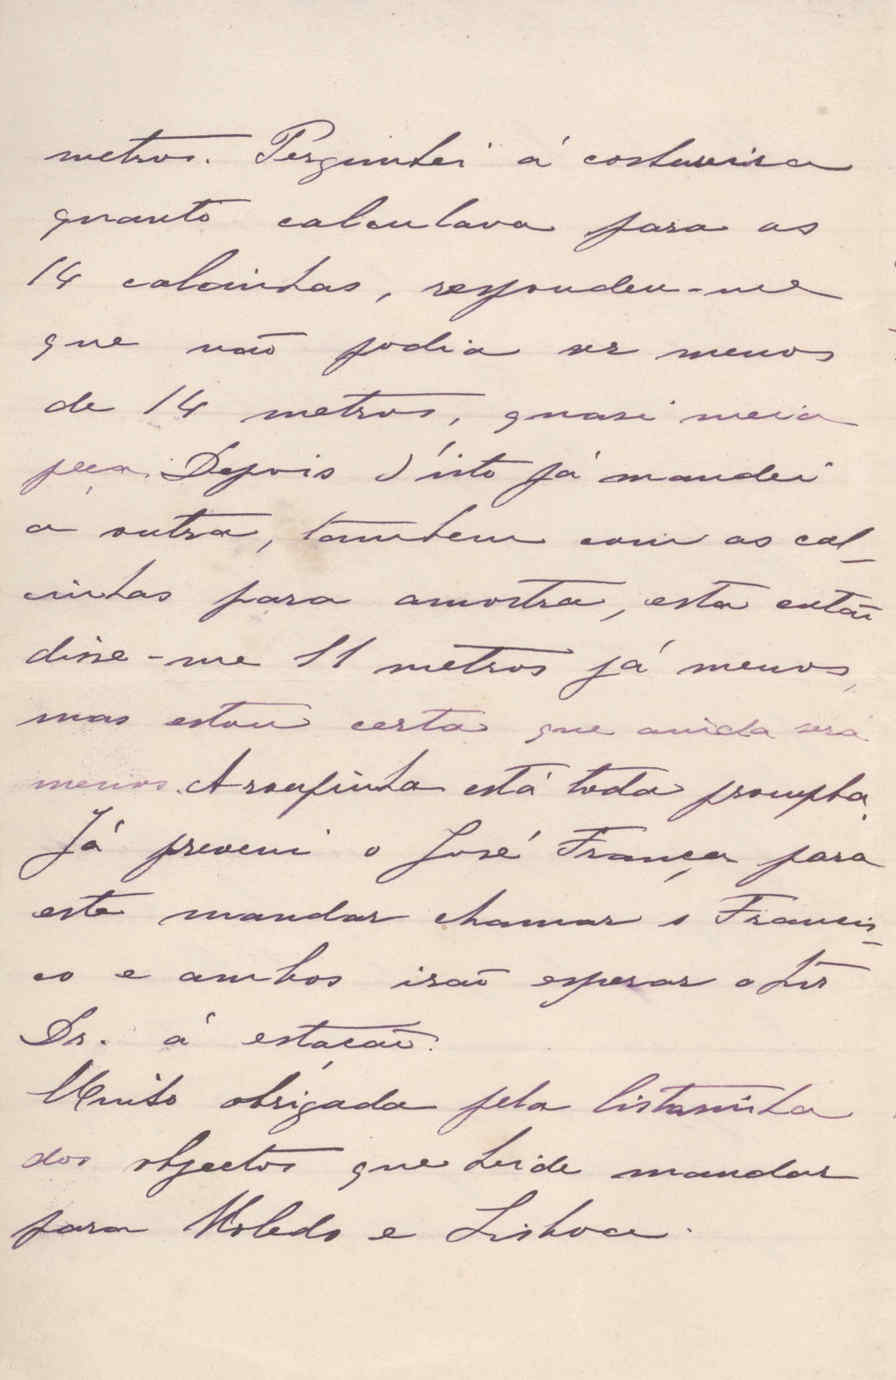 metros. Perguntei á costureira
quanto calculava para as
14 calcinhas, respondeu-me
que não podia ser menos
de 14 metros, quasi meia
peça. Depois d'isto já mandei
a outra, tambem com as cal-
cinhas para amostra, esta então
disse-me 11 metros já menos,
mas estou certa que ainda será
menos. A roupinha está toda prompta.
Já preveni o José França para
este mandar chamar o Francis-
co e ambos irão esperar o Snr
Dr. á estação.
Muito obrigada pela listasinha
dos objectos que hei de mandar
para Moledo e Lisboa.